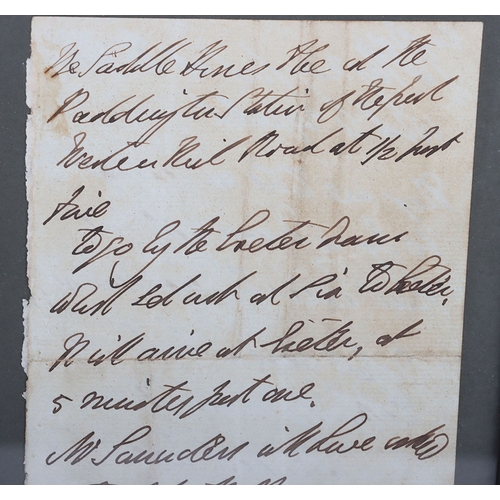 The Saddle Horses to be at the
Paddington Station of the Great
Western Rail Road at 1/2 past
five
To go by the Exeter Train
which sets out at Six To Exeter,
It will arrive at Exeter, at
5 minutes past one.
Mr Saunders will have